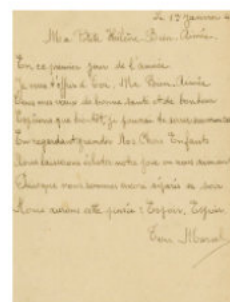 Le 1er Janvier
Ma Petite Hélène Bien-Aimée
En ce premier jour de l'année
Je viens t'offrir à Toi, Ma Bien-Aimée
Tous mes vœux de bonne santé et de bonheur
Espérons que bientôt, je pourrai te serrer
En regardant grandir Nos Chers Enfants
Nous laisserons éclater notre joie en nous aimant
Puisque nous sommes encore séparés ce soir
Nous aurons cette pensée : Espoir, Espoir
Ton Marcel